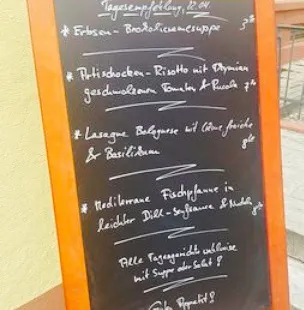 Tagesempfehlung, 12.04.
* Erbsen-Brokkolicremesuppe 3,50
* Artischocken-Risotto mit Thymian
geschmolzenen Tomaten & Rucola
* Lasagne Bolognese mit Crème fraîche
& Basilikum
* Mediterrane Fischpfanne in
leichter Dill-Senfsauce & Nudeln
Alle Tagesgerichte wahlweise
mit Suppe oder Salat!
Guten Appetit!